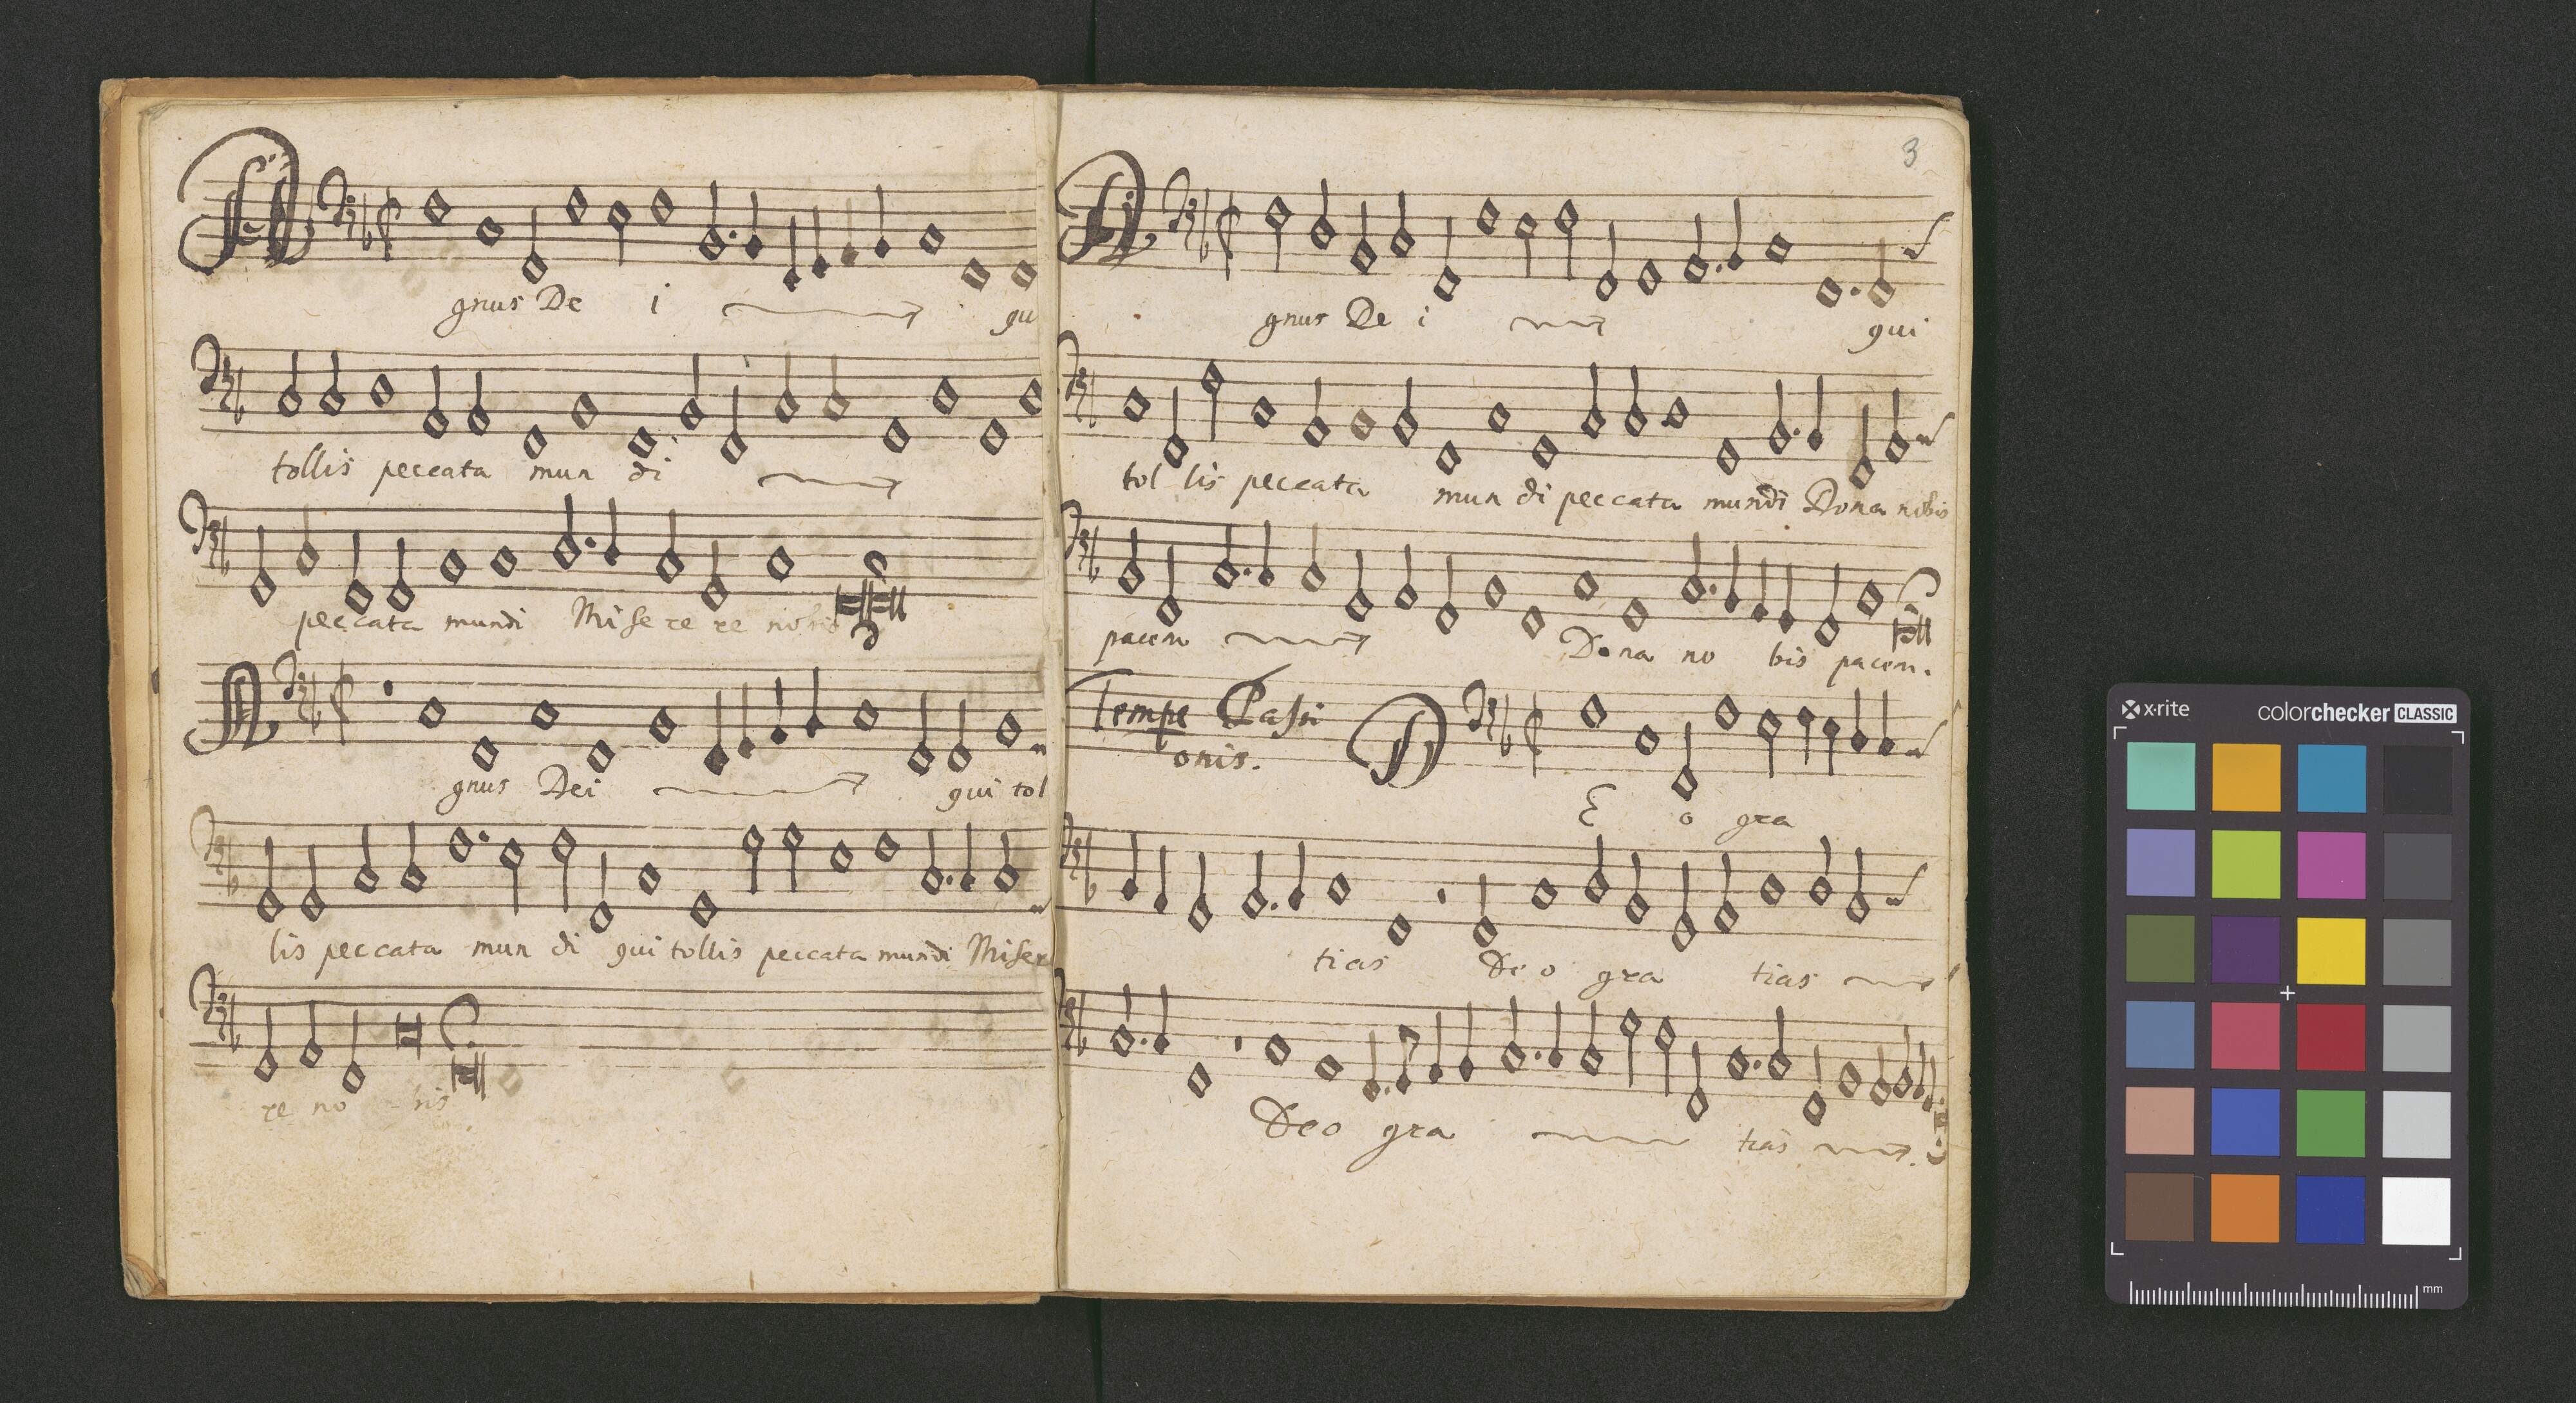 Agnus Dei qui
tollis peccata mun di
peccata mundi Misere re nobis
Agnus Dei qui tol
lis peccata mun di qui tollis peccata mundi Misere
re no - bis
3
Agnus De i qui
tol lis peccata mun di peccata mundi Dona nobis
pacem Dona no bis pacem.
Tempe Passi
onis.
DE o gra
tias Deo gra tias
Deo gra tias
x-rite colorchecker CLASSIC
mm